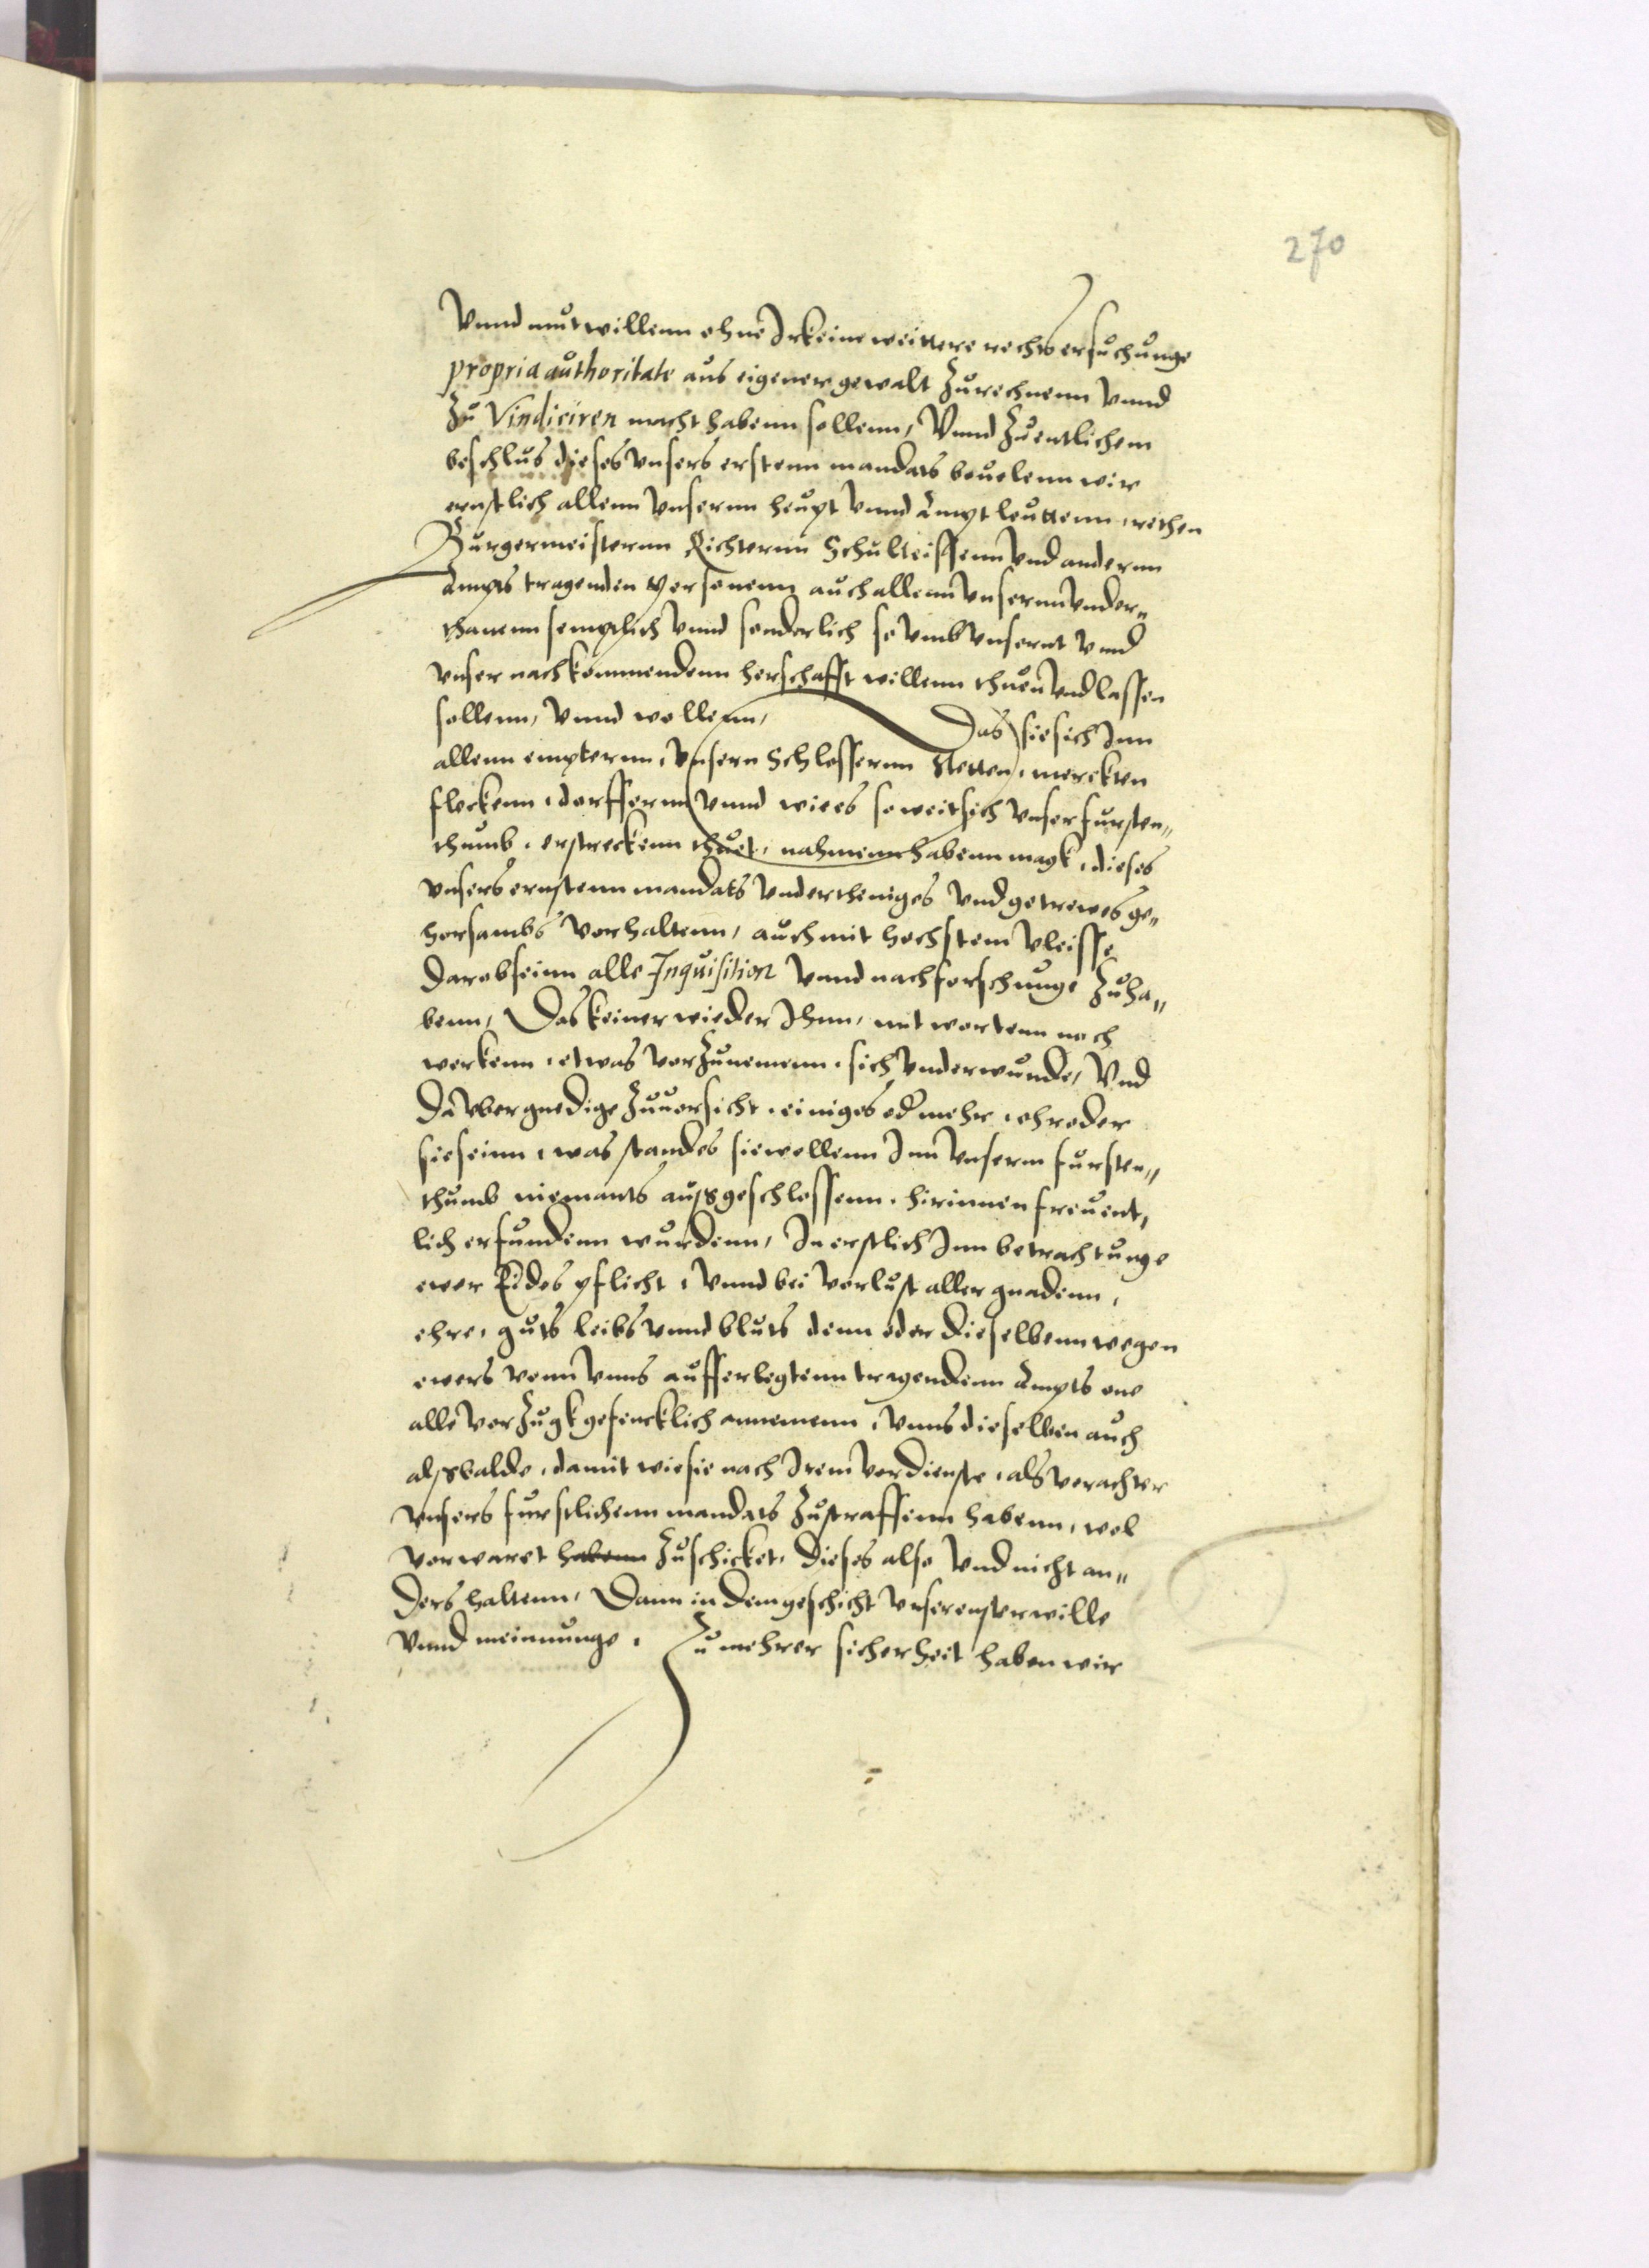 270
Vnnd mutwillenn ohne Irkeine weittere rechts ersuchunge
propria authoritate aus eigener gewalt Zurechnenn vnnd
Zu Vindiciren macht habenn sollenn, Vnnd Zuentlichem
beschlus dieses vnsers ernstenn mandats beuelenn wir
ernstlich allenn vnsernn heupt vnnd Amptleuttenn, rethen
Burgermeisternn Richternn Schulteissenn vnd andernn
Ampts tragenden Personenn auch allenn vnsernn vnder„
thanenn semptlich vnnd sonderlich so vmb vnsernt vnnd
vnser nachkommendenn herschafft willenn thuen vnd lassen
sollenn, vnnd wollenn, Das sie sich Inn
allenn empternn, vnsern Schlossernn Stetten, merckten
fleckenn, dorffernn vnnd wie es so weit sich vnser fursten„
thumb, erstreckenn thuet, nahmenn habenn magk, dieses
vnsers ernstenn mandats vndertheniges vnd getrewes ge„
horsambs vorhaltenn, auch mit hochstem vleisse
darob seinn alle Inquisition vnnd nachforschunge Zuha„
benn, Das keiner wieder Ihnn, mit wortenn noch
werkenn, etwas vorZunemenn, sich vnderwunde, Vnd
Da vber gnedige Zuuorsicht, einiges od mehr, ehr oder
sie seinn, was standes sie wollenn Inn vnserm fursten„
thumb niemants aussgeschlossenn, hirinnen freuent,
lich erfundenn wurdenn, In erstlich Inn betrachtunge
ewer Eides pflicht, vnnd bei vorlust aller gnadenn,
ehre, guts leibs vnnd bluts denn oder dieselbenn wegen
ewers vonn vnns aufferlegtenn tragendenn Ampts one
alle vorZugk gefencklich annemenn, vnns dieselben auch
alssbalde, damit wie sie nach Irem vordienste, als vorachter
vnsers furstlichenn mandats Zustraffenn habenn, wol
vorwaret habenn Zuschicket, dieses also vnd nicht an„
ders haltenn, Dann in dem geschicht vnser ernster wille
vnnd meinnunge, Zu mehrer sicherheit haben wir